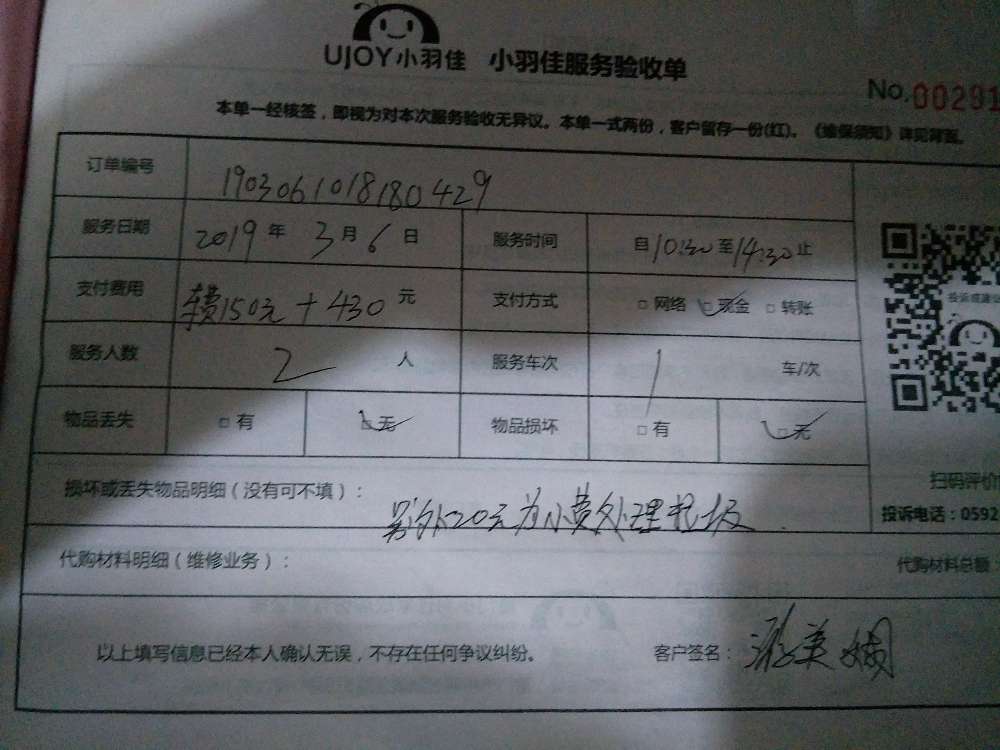 UJOY小羽佳 小羽佳服务验收单
No.00291
本单一经核签，即视为对本次服务验收无异议。本单一式两份，客户留存一份(红)。《维保须知》详见背面。
订单编号 1903061018180429
服务日期 2019年3月6日 服务时间 自10:30至14:30止
支付费用 车费150元+430元 支付方式 □网络 □现金 □转账
服务人数 2人 服务车次 1车/次
物品丢失 □有 □无 物品损坏 □有 □无
扫码评价
损坏或丢失物品明细（没有可不填）： 另外20元为小费处理垃圾
投诉电话：0592
代购材料明细（维修业务）： 代购材料总额：
以上填写信息已经本人确认无误，不存在任何争议纠纷。 客户签名：